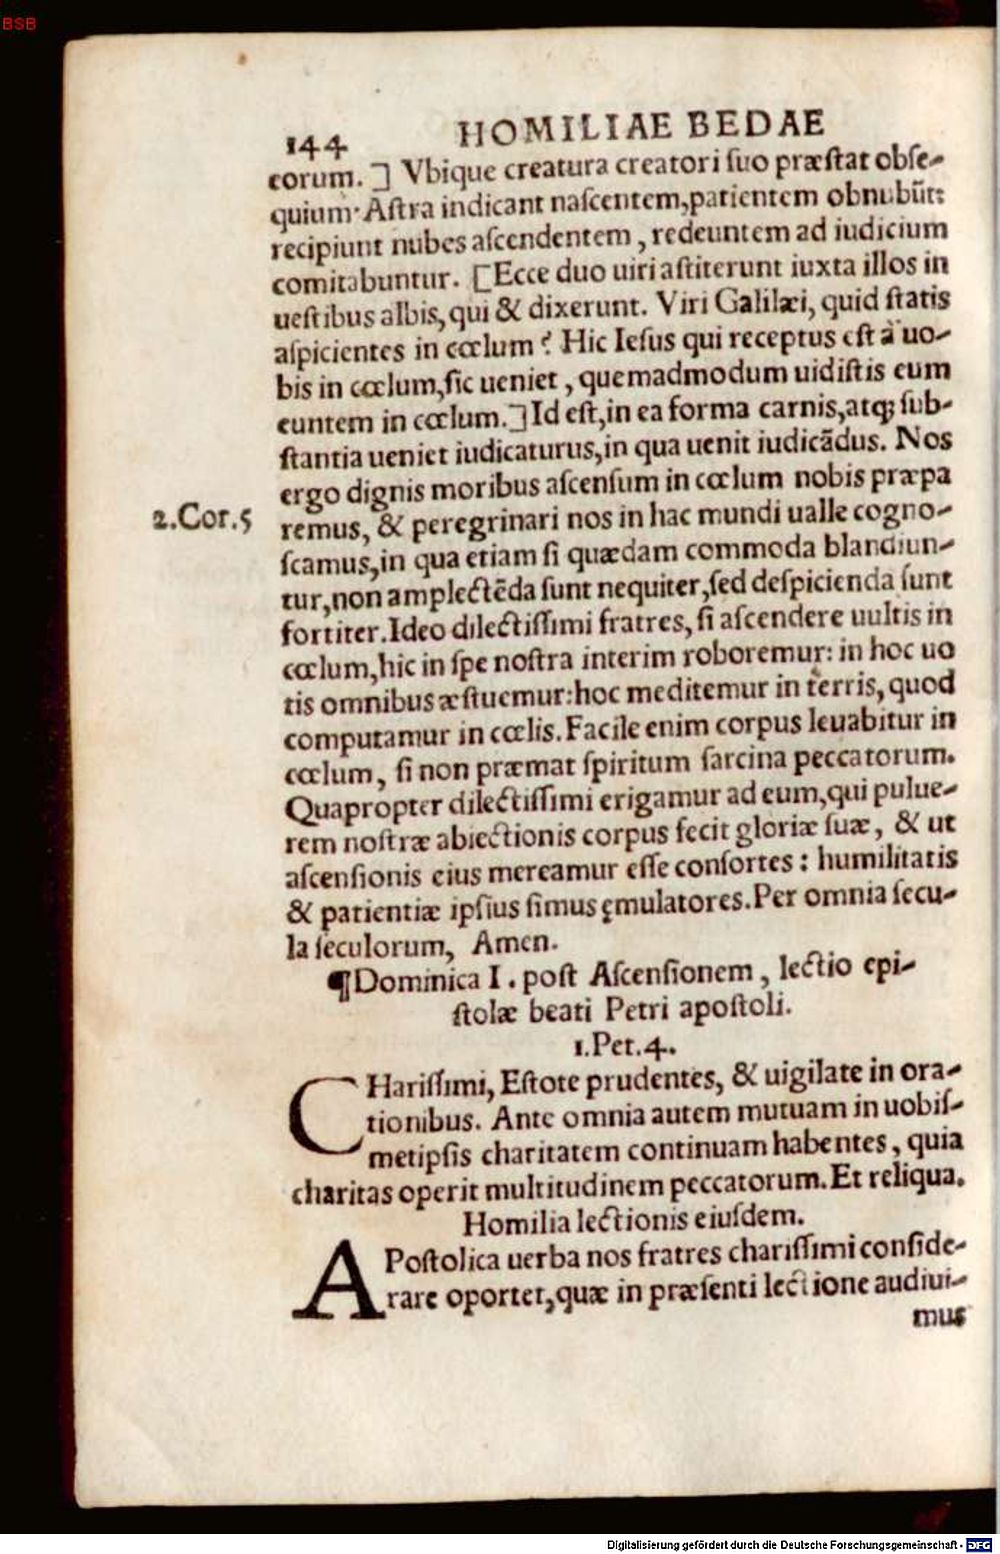 BSB
144 HOMILIAE BEDAE
corum. ] Vbique creatura creatori ſuo præſtat obſe-
quium· Aſtra indicant naſcentem, patientem obnubūt:
recipiunt nubes aſcendentem, redeuntem ad iudicium
comitabuntur. [Ecce duo uiri aſtiterunt iuxta illos in
ueſtibus albis, qui & dixerunt. Viri Galilæi, quid ſtatis
aſpicientes in cœlum? Hic Ieſus qui receptus eſt à uo-
bis in cœlum, ſic ueniet, quemadmodum uidiſtis eum
euntem in cœlum.] Id eſt, in ea forma carnis, atq; ſub-
ſtantia ueniet iudicaturus, in qua uenit iudicādus. Nos
ergo dignis moribus aſcenſum in cœlum nobis præpa
2.Cor.5 remus, & peregrinari nos in hac mundi ualle cogno-
ſcamus, in qua etiam ſi quædam commoda blandiun-
tur, non amplectēda ſunt nequiter, ſed deſpicienda ſunt
fortiter. Ideo dilectiſſimi fratres, ſi aſcendere uultis in
cœlum, hic in ſpe noſtra interim roboremur: in hoc uo
tis omnibus æſtuemur: hoc meditemur in terris, quod
computamur in cœlis. Facile enim corpus leuabitur in
cœlum, ſi non præmat ſpiritum ſarcina peccatorum.
Quapropter dilectiſſimi erigamur ad eum, qui pulue-
rem noſtræ abiectionis corpus fecit gloriæ ſuæ, & ut
aſcenſionis eius mereamur eſſe conſortes: humilitatis
& patientiæ ipſius ſimus ęmulatores. Per omnia ſecu-
la ſeculorum, Amen.
¶Dominica I. poſt Aſcenſionem, lectio epi-
ſtolæ beati Petri apoſtoli.
1.Pet.4.
CHariſſimi, Eſtote prudentes, & uigilate in ora-
tionibus. Ante omnia autem mutuam in uobiſ-
metipſis charitatem continuam habentes, quia
charitas operit multitudinem peccatorum. Et reliqua.
Homilia lectionis eiuſdem.
APoſtolica uerba nos fratres chariſſimi conſide-
rare oportet, quæ in præſenti lectione audiui-
mus
Digitalisierung gefördert durch die Deutsche Forschungsgemeinschaft - DFG